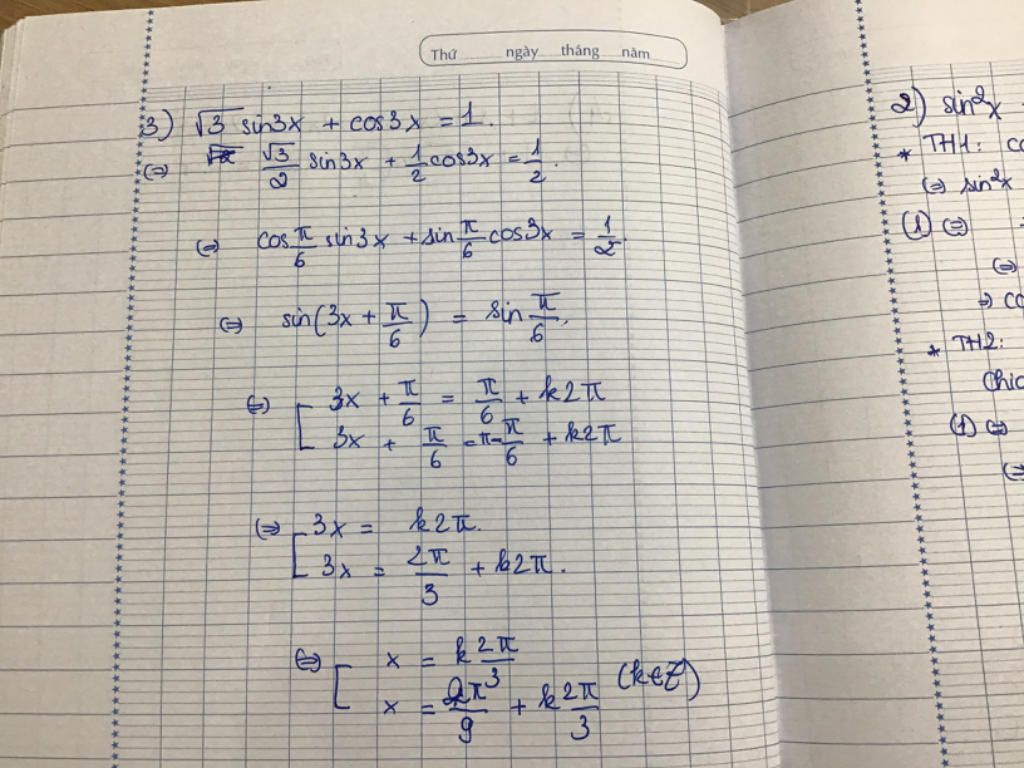 Thứ ngày tháng năm
3) √3 sin3x + cos3x = 1.
(=) √3/2 sin3x + 1/2 cos3x = 1/2.
(=) cos π/6 sin3x + sin π/6 cos3x = 1/2.
(=) sin(3x + π/6) = sin π/6,
(=) [ 3x + π/6 = π/6 + k2π
3x + π/6 = π - π/6 + k2π
(=) [ 3x = k2π.
3x = 2π/3 + k2π.
(=) [ x = k 2π/3
x = 2π/9 + k 2π/3 (k∈Z)
2) sin²x
* TH1: co
(=) sin²x
(1) (=)
(=)
=) co
* TH2:
Chia
(1) (=)
(=)